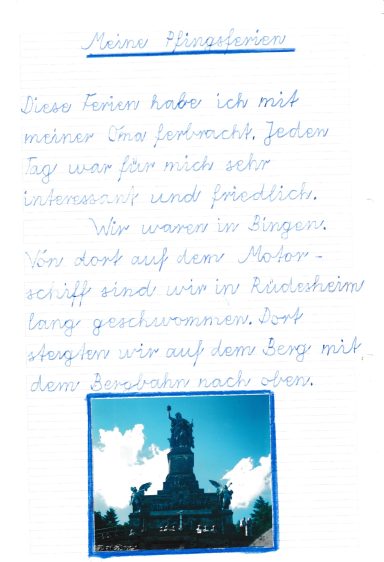 Meine Pfingsferien
Diese Ferien habe ich mit
meiner Oma ferbracht. Jeden
Tag war für mich sehr
interessant und friedlich.
Wir waren in Bingen.
Von dort auf dem Motor-
schiff sind wir in Rüdesheim
lang geschwommen. Dort
steigten wir auf dem Berg mit
dem Bergbahn nach oben.